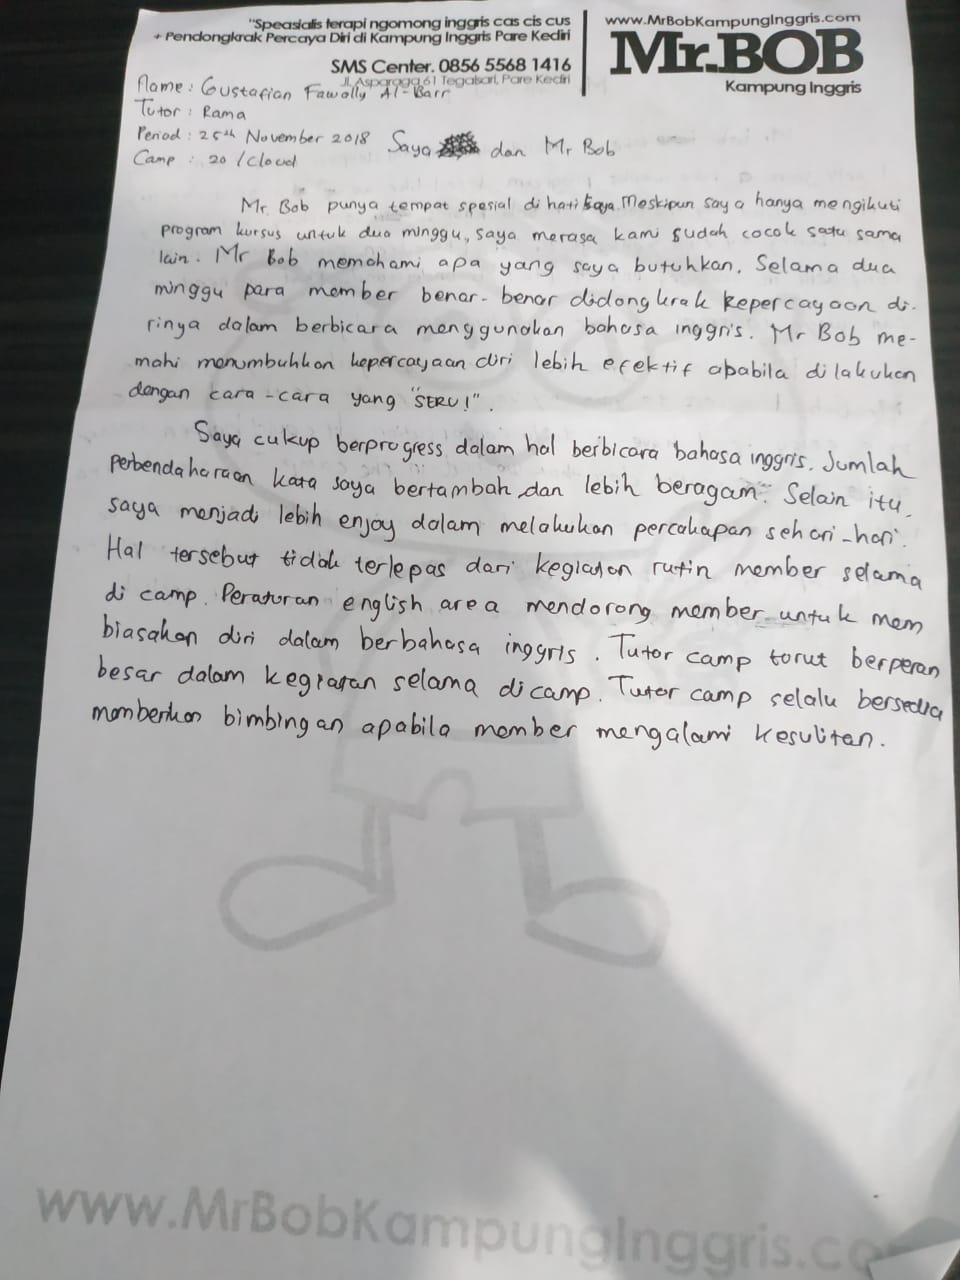 "Speasialis terapi ngomong inggris cas cis cus
+ Pendongkrak Percaya Diri di Kampung Inggris Pare Kediri
SMS Center. 0856 5568 1416
Jl. Asparaga 61 Tegalsari, Pare Kediri
www.MrBobKampungInggris.com
Mr.BOB
Kampung Inggris
Name : Gustafian Fawally Al-Barr
Tutor : Rama
Period : 25th November 2018
Camp : 20 / Cloud
Saya dan Mr Bob
Mr. Bob punya tempat spesial di hati saya. Meskipun saya hanya mengikuti
program kursus untuk dua minggu, saya merasa kami sudah cocok satu sama
lain. Mr Bob memahami apa yang saya butuhkan. Selama dua
minggu para member benar-benar didongkrak kepercayaan di-
rinya dalam berbicara menggunakan bahasa inggris. Mr Bob me-
mahi menumbuhkan kepercayaan diri lebih efektif apabila dilakukan
dengan cara-cara yang "SERU!".
Saya cukup berprogress dalam hal berbicara bahasa inggris. Jumlah
perbendaharaan kata saya bertambah dan lebih beragam. Selain itu,
saya menjadi lebih enjoy dalam melakukan percakapan sehari-hari.
Hal tersebut tidak terlepas dari kegiatan rutin member selama
di camp. Peraturan english area mendorong member untuk mem
biasakan diri dalam berbahasa inggris. Tutor camp torut berperan
besar dalam kegiatan selama di camp. Tutor camp selalu bersedia
memberikan bimbingan apabila member mengalami kesulitan.
www.MrBobKampungInggris.co